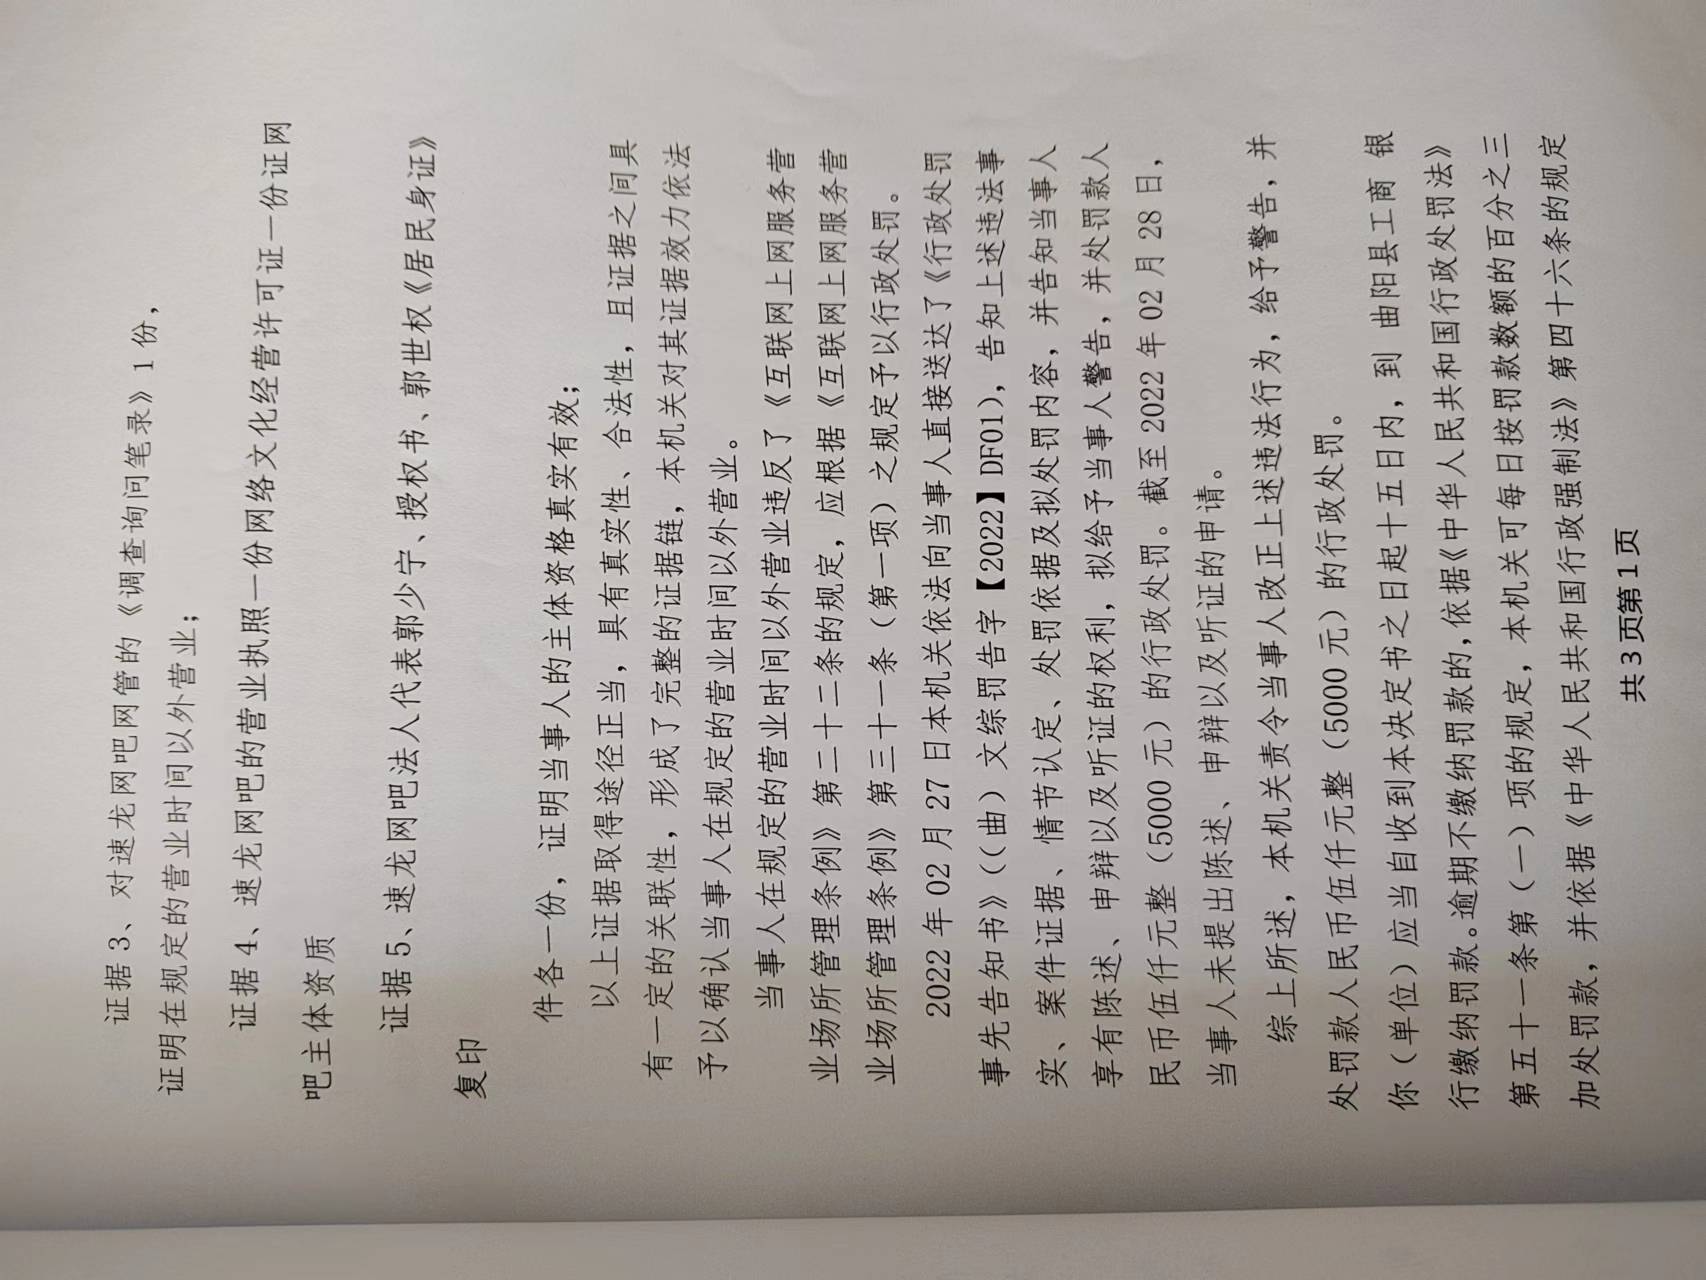 证据 3、对速龙网吧网管的《调查询问笔录》1 份，
证明在规定的营业时间以外营业；
证据 4、速龙网吧的营业执照一份网络文化经营许可证一份证网
吧主体资质
证据 5、速龙网吧法人代表郭少宁、授权书、郭世权《居民身证》
复印
件各一份，证明当事人的主体资格真实有效；
以上证据取得途径正当，具有真实性、合法性，且证据之间具
有一定的关联性，形成了完整的证据链，本机关对其证据效力依法
予以确认当事人在规定的营业时间以外营业。
当事人在规定的营业时间以外营业违反了《互联网上网服务营
业场所管理条例》第二十二条的规定，应根据《互联网上网服务营
业场所管理条例》第三十一条（第一项）之规定予以行政处罚。
2022 年 02 月 27 日本机关依法向当事人直接送达了《行政处罚
事先告知书》（（曲）文综罚告字【2022】DF01），告知上述违法事
实、案件证据、情节认定、处罚依据及拟处罚内容，并告知当事人
享有陈述、申辩以及听证的权利，拟给予当事人警告，并处罚款人
民币伍仟元整（5000 元）的行政处罚。截至 2022 年 02 月 28 日，
当事人未提出陈述、申辩以及听证的申请。
综上所述，本机关责令当事人改正上述违法行为，给予警告，并
处罚款人民币伍仟元整（5000 元）的行政处罚。
你（单位）应当自收到本决定书之日起十五日内，到 曲阳县工商 银
行缴纳罚款。逾期不缴纳罚款的，依据《中华人民共和国行政处罚法》
第五十一条第（一）项的规定，本机关可每日按罚款数额的百分之三
加处罚款，并依据《中华人民共和国行政强制法》第四十六条的规定
共 3 页第 1 页